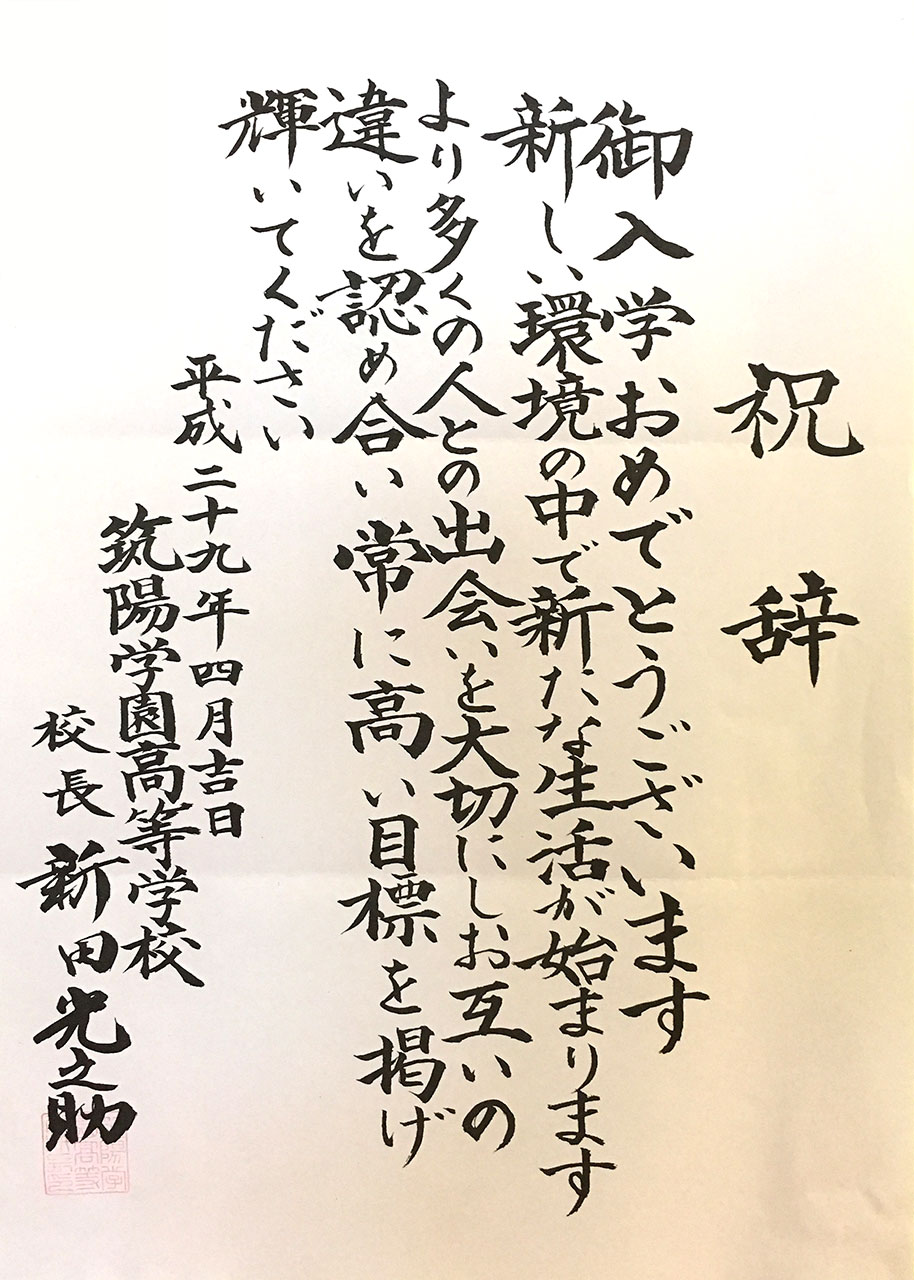 祝辞
御入学おめでとうございます
新しい環境の中で新たな生活が始まります
より多くの人との出会いを大切にしお互いの
違いを認め合い常に高い目標を掲げ
輝いてください
平成二十九年四月吉日
筑陽学園高等学校
校長 新田光之助